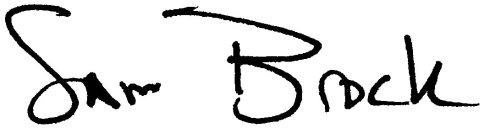 Sam Brock